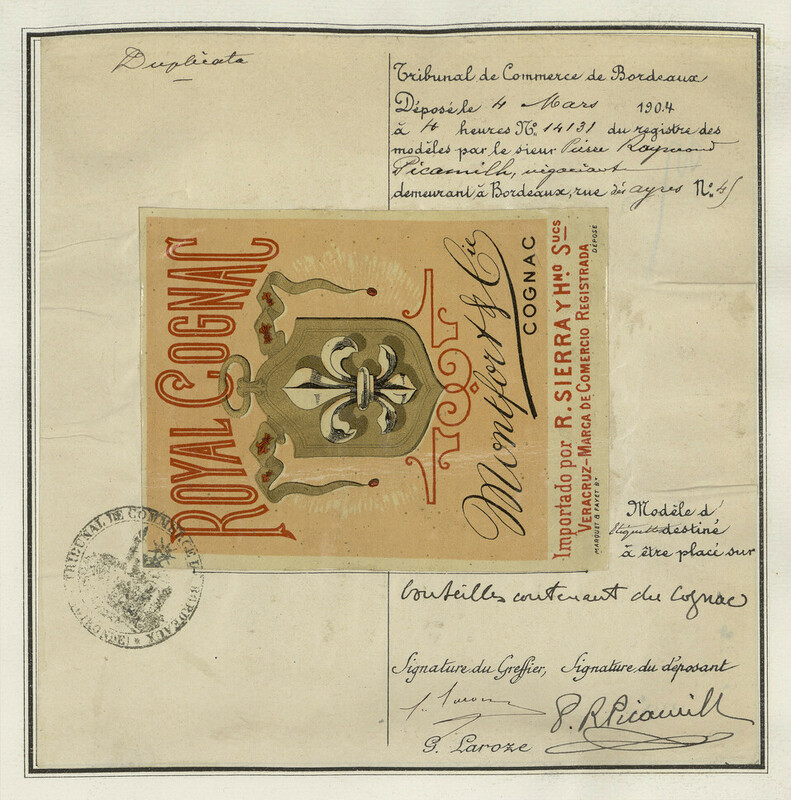 Duplicata
Tribunal de Commerce de Bordeaux
Déposé le 4 Mars 1904
à 4 heures No. 14131 du registre des
modèles par le sieur Pierre Raymond
Picamilh, négociant
demeurant à Bordeaux, rue des ayres No. 45
ROYAL COGNAC
Montfort & Cie
COGNAC
Importado por R. SIERRA Y HNO. SUCS
VERACRUZ–MARCA DE COMERCIO REGISTRADA
DÉPOSÉ
MARQUET & FAYET BX
Modèle d'
étiquette destiné
à être placé sur
bouteilles contenant du Cognac
TRIBUNAL DE COMMERCE DE BORDEAUX
Signature du Greffier, Signature du déposant
P. R. Picamilh
G. Laroze